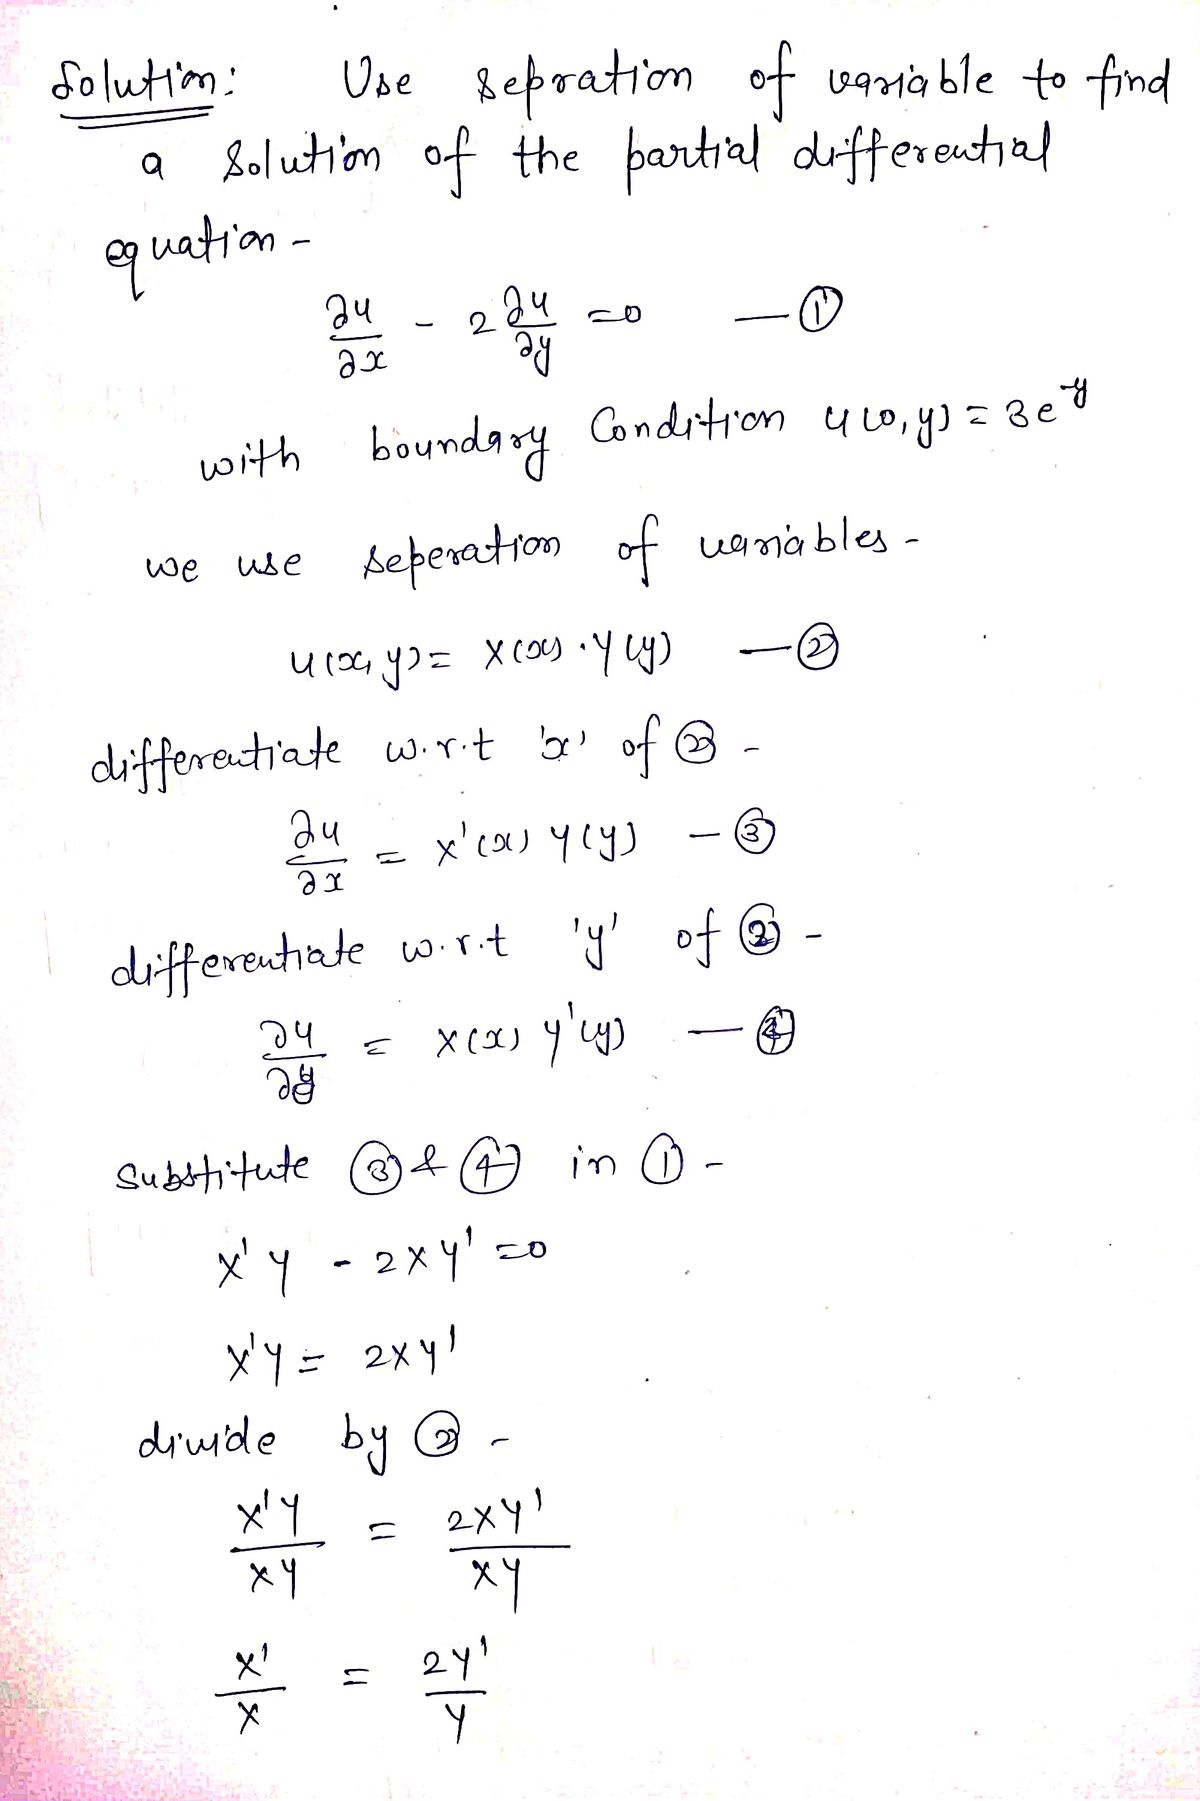 Solution: Use sepration of variable to find
a Solution of the partial differential
equation -
∂u/∂x - 2 ∂u/∂y = 0 — ①
with boundary Condition u(0,y) = 3e^-y
we use seperation of variables -
u(x,y) = X(x) · Y(y) — ②
differentiate w.r.t 'x' of ② -
∂u/∂x = X'(x) Y(y) — ③
differentiate w.r.t 'y' of ② -
∂u/∂y = X(x) Y'(y) — ④
Substitute ③ & ④ in ① -
X'Y - 2XY' = 0
X'Y = 2XY'
divide by ② -
X'Y/XY = 2XY'/XY
X'/X = 2Y'/Y